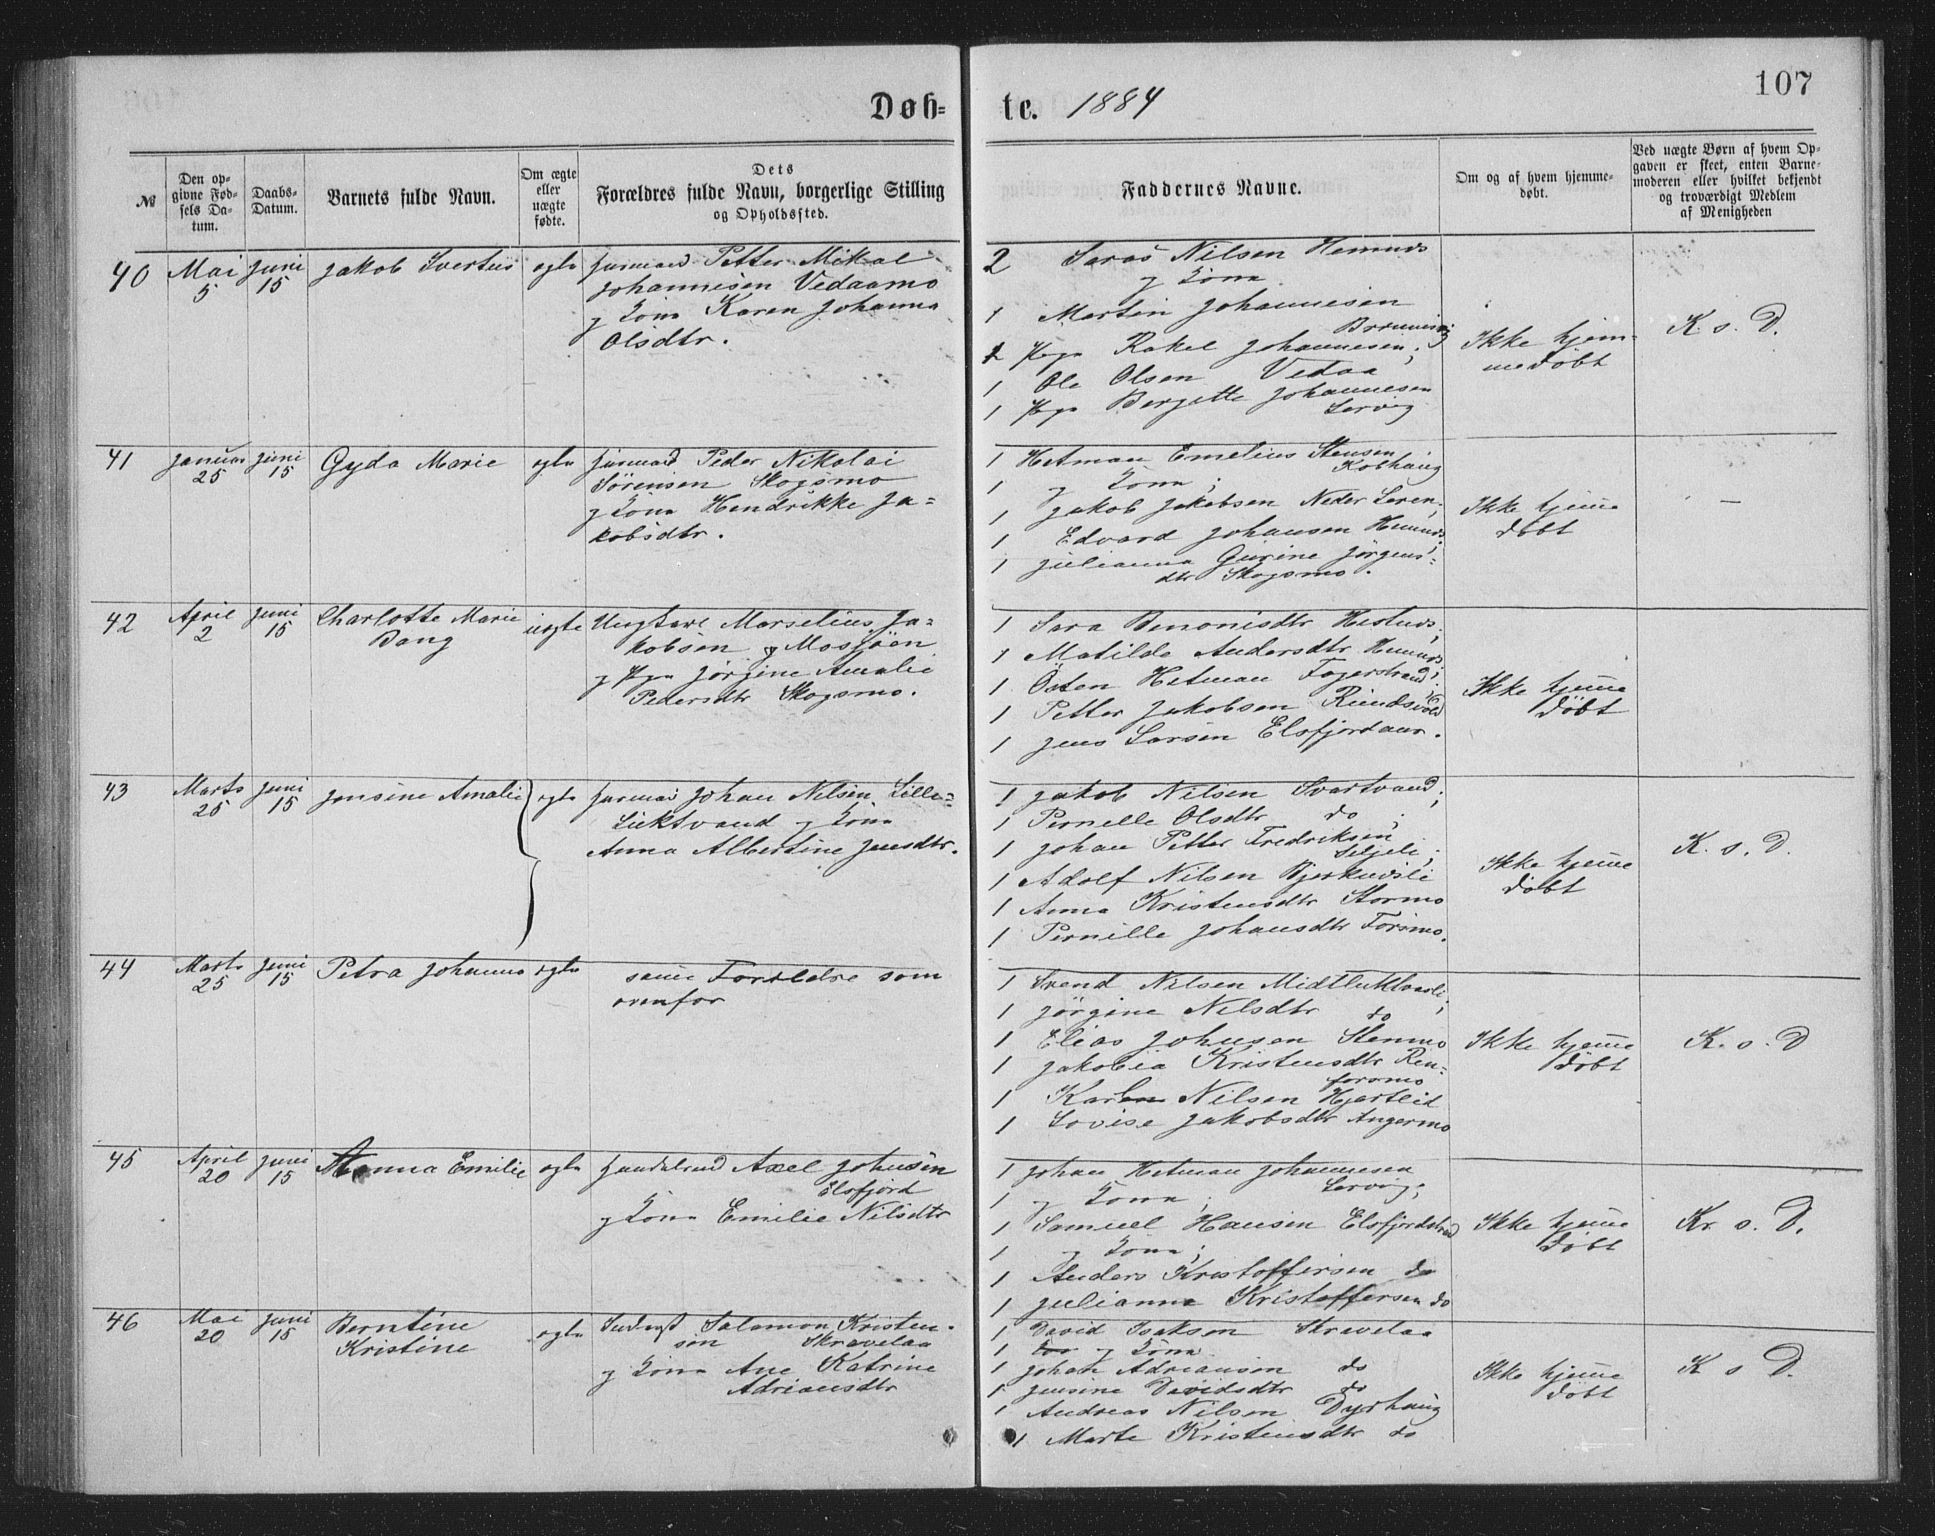 107
Døb=
te. 1884
№
Den op-
givne Fød-
sels Da-
tum.
Daabs-
Datum.
Barnets fulde Navn.
Om ægte
eller
uægte
fødte.
Dets
Forældres fulde Navn, borgerlige Stilling
og Opholdssted.
Faddernes Navne.
Om og af hvem hjemme-
døbt.
Ved uægte Børn af hvem Op-
gaven er skeet, enten Barne-
moderen eller hvilket bekjendt
og troværdigt Medlem
af Menigheden
40
Mai
5
Juni
15
Jakob Svertus
ægte
Husmand Petter Mikal
Johannesen Vedaamo
og Kona Karen Johanna
Olsdtr.
2 Nilsen Hemnes
og Kona
1 Martin Johannesen
1 Pige Rakel Johannesen;
1 Ole Olsen Vedaa
1 Pige Bergette Johannesen
Lervig
Ikke hjem-
medøbt
K. s. D.
41
Januar
25
Juni
15
Gyda Marie
ægte
Husmand Peder Nikolai
Sørensen Skogsmo
og Kona Hendrikke Ja=
kobsdtr.
1 Hetman Emelius Stensen
Kobhaug
1 og Kona;
1 Jakob Jakobsen Neder Leren;
1 Edvard Johansen Hemnes;
1 Julianna Gurine Jørgens=
dtr Skogsmo.
Ikke hjemme
døbt
—
42
April
2
Juni
15
Charlotte Marie
Bang
uægte
Ungkarl Marselius Ja=
kobsen Mosjøen
og Pige Jørgine Amalie
Pedersdtr Skogsmo.
1 Sara Benonisdtr Hestnes;
1 Matilde Andersdtr Hemnes;
1 Østen Hetman Fagerstrand;
1 Petter Jakobsen Rundsvold
1 Jens Larsen Elsfjordaur.
Ikke hjemme
døbt
43
Marts
25
Juni
15
Jonsine Amalie
ægte
Husmand Johan Nilsen Lille=
Luktvand og Kona
Anna Albertine Jensdtr.
1 Jakob Nilsen Svartvand;
1 Pernelle Olsdtr do;
1 Johan Petter Fredriksen
Seljeli;
1 Adolf Nilsen Bjerknesli
1 Anna Kristensdtr Stormo
1 Pernille Johansdtr Forsmo.
Ikke hjemme
døbt
K. s. D.
44
Marts
25
Juni
15
Petra Johanna
ægte
samme Forældre som
ovenfor
1 Svend Nilsen Midtluktvasli;
1 Jørgine Nilsdtr do
1 Elias Johnsen Stenmo
1 Jakobia Kristensdtr Ren=
forsmo
1 Karl Nilsen Hjartlid
1 Lovise Jakobsdtr Angermo
Ikke hjemme
døbt
K. s. D
45
April
20
Juni
15
Hanna Emilie
ægte
Handelsmd Axel Johnsen
Elsfjord
og Kona Emilie Nilsdtr
1 Johan Hetman Johannesen
Lervig;
1 og Kona;
1 Samuel Hansen Elsfjordstrand
1 og Kona;
1 Anders Kristoffersen do
1 Julianne Kristoffersen do
Ikke hjemme
døbt
Kr. s. D.
46
Mai
20
Juni
15
Berntine
Kristine
ægte
Salamon Kristen=
sen Skravelaa
og Kona Ane Katrine
Adriansdtr
1 David Isaksen Skravelaa
1 og Kona
1 Johan Adriansen do
1 Jensine Davidsdtr do
1 Andreas Nilsen Dyrhaug
1 Marte Kristensdtr do
Ikke hjemme
døbt
K s D.